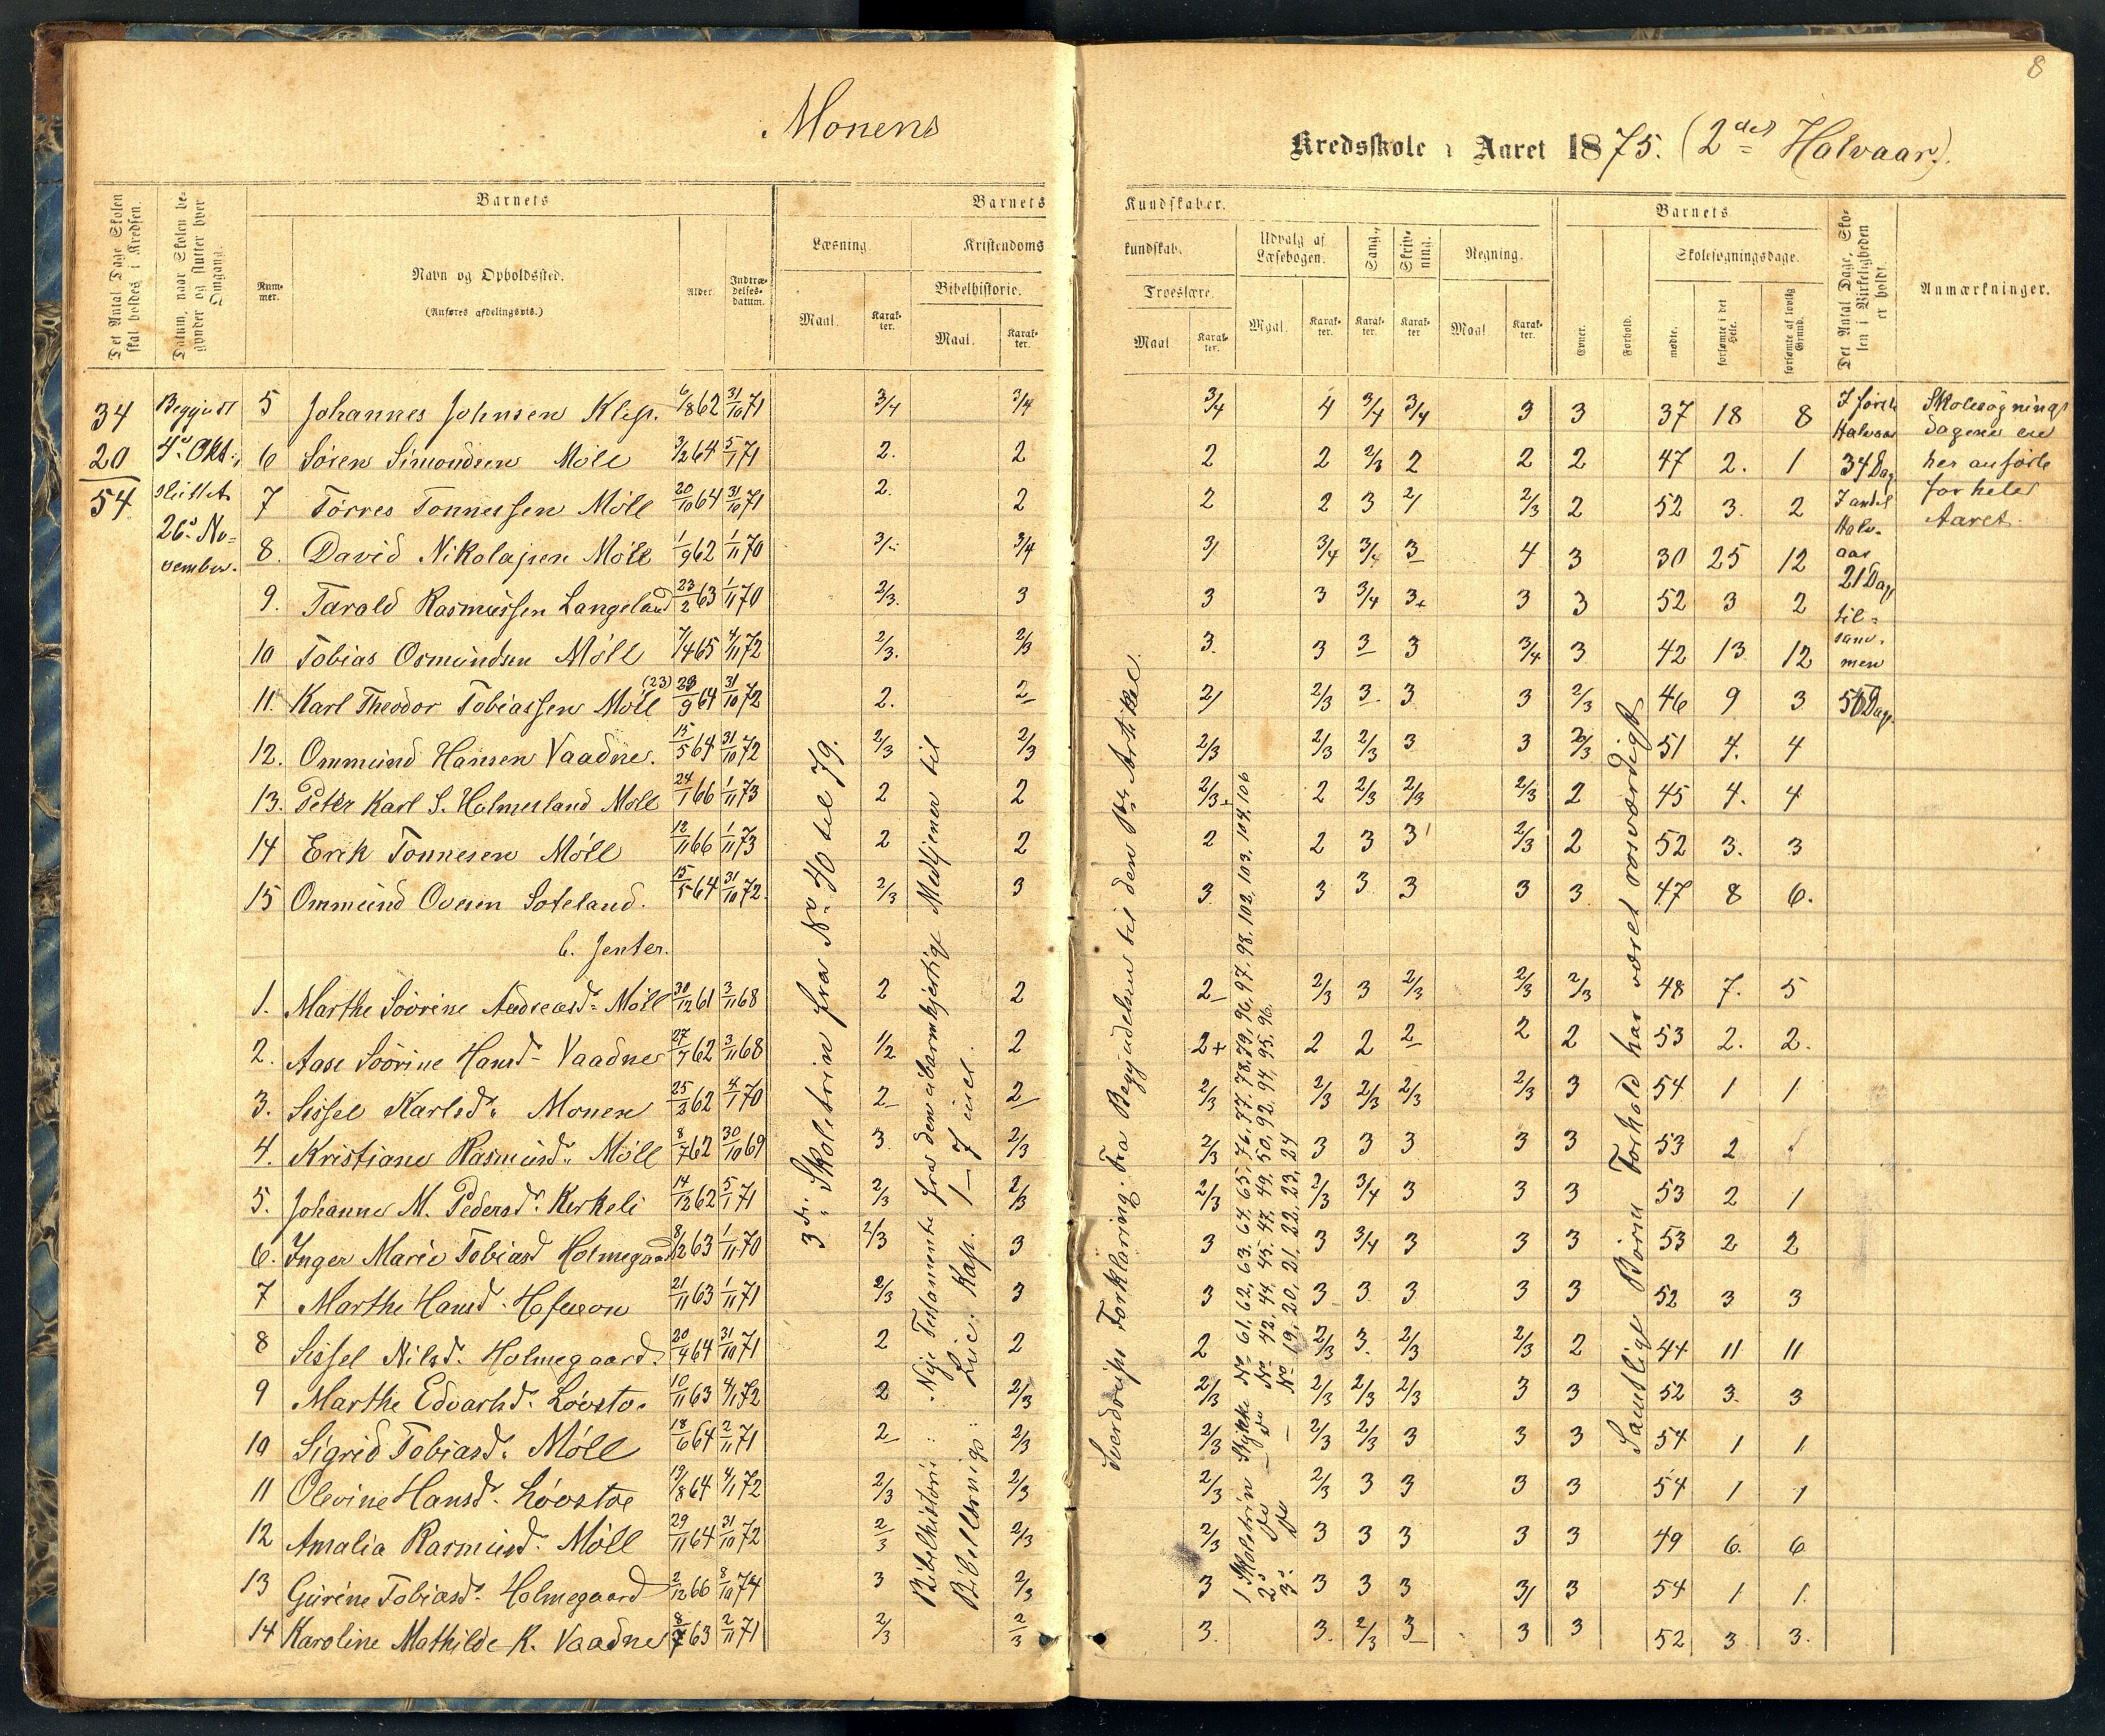 8
Monens
Kredsskole i Aaret 1875. (2det Halvaar).
Det Antal Dage Skolen skal holdes i Kredsen.
Datum, naar Skolen begynder og slutter hver Omgang.
Barnets
Nummer.
Navn og Opholdssted.
(Anføres afdelingsvis.)
Alder.
Indtrædelsesdatum.
Barnets
Læsning.
Maal.
Karakter.
Kristendoms
Bibelhistorie.
Maal.
Karakter.
Kundskaber.
kundskab.
Troeslære.
Maal
Karakter.
Udvalg af Læsebogen.
Maal.
Karakter.
Sang.
Karakter.
Skrivning.
Karakter.
Regning.
Maal
Karakter.
Barnets
Evner.
Forhold.
Skolesøgningsdage.
mødte.
forsømte i det Hele.
forsømte af lovlig Grund.
Det Antal Dage, Skolen i Virkeligheden er holdt.
Anmærkninger.
34
20
54
Begyndt
4de Okt.,
sluttet
26de No=
vember.
5 Johannes Johnsen Klep. 6/8 62 31/10 71 3/4 3/4 3/4 4 3/4 3/4 3 3 37 18 8
6 Sören Simondsen Möll 3/2 64 5/1 71 2. 2 2 2 2/3 2 2 2 47 2. 1
7 Törres Tönnessen Möll 20/10 64 31/10 71 2. 2 2 2 3 2/ 2/3 2 52 3. 2
8. David Nikolajsen Möll 1/9 62 1/11 70 3/4 3/ 3/4 3/4 3 4 3 30 25 12
9. Tarald Rasmussen Langeland 23/2 63 1/11 70 2/3. 3 3 3 3/4 3+ 3 3 52 3 2
10 Tobias Osmundsen Möll 7/4 65 4/11 72 2/3. 2/3 3. 3 3 3 3/4 3 42 13 12
11. Karl Theodor Tobiassen Möll (23) 29/9 64 31/10 72 2. 2 2/ 2/3 3 3 3 2/3 46 9 3
12. Ommund Hansen Vaadne. 15/5 64 31/10 72 2/3 2/3 2/3 2/3 2/3 3 3 2/3 51 4. 4
13. Peter Karl S. Holmesland Möll 24/1 66 1/11 73 2 2 2/3 2 2/3 2/3 2/3 2 45 4. 4
14 Erik Tönnesen Möll 12/11 66 1/11 73 2 2 2 2 3 3 2/3 2 52 3. 3
15 Ommund Ovesen Soteland. 15/5 64 31/10 72. 2/3 3 3 3 3 3 3 3 47 8 6.
b. Jenter.
1. Marthe Sövrine Andreasd. Möll 30/12 61 3/11 68 2 2 2– 2/3 3 2/3 2/3 2/3 48 7. 5
2. Aase Sövrine Hansd. Vaadne 27/7 62 3/11 68 1/2 2 2+ 2 2 2 2 2 53 2. 2.
3. Sissel Karlsd. Monen 25/3 62 4/1 70 2– 2– 2/3 2/3 2/3 2/3 2/3 3 54 1 1
4. Kristiane Rasmusd. Möll 8/7 62 30/10 69 3 2/3 2/3 3 3 3 3 3 53 2
5. Johanne M. Pedersd. Kerkeli 14/12 62 5/1 71 2/3 2/3 2/3 2/3 3/4 3 3 3 53 2 1
6. Inger Marie Tobiasd Holmegaard 8/12 63 1/11 70 2/3 3 3 3 3/4 3 3 3 53 2 2
7 Marthe Hansd. 21/11 63 1/11 71 2/3 3 3 3 3 3 3 3 52 3 3
8 Sissel Nilsd. Holmegaard. 20/4 64 31/10 71 2 2 2 2/3 3. 2/3 2/3 2 44 11 11
9 Marthe Edvarhd. Lövsto. 10/11 63 4/1 72 2 2/3 2/3 2/3 2/3 2/3 3 3 52 3. 3
10 Sigrid Tobiasd. Möll 18/6 64 2/11 71 2– 2/3 2/3 2/3 2/3 3 3 3 54 1 1
11 Olevine Hansd. Lövstoe 19/8 64 4/1 72 2/3 2/3 2/3 2/3 3 3 3 3 54 1 1
12 Amalia Rasmusd. Möll 29/11 64 31/10 72 2/3 2/3 2/3 3 3 3 3 3 49 6. 6
13 Gurine Tobiasd. Holmegaard 2/12 66 8/10 74 3 2/3 3 3 3 3 3/ 3 54 1 1.
14 Karoline Mathilde K. Vaadne 8/7 63 2/11 71 2/3 2/3 3. 3. 2/3 3 3 3 52 3 3.
3de Skoletrin fra No. 40 til 79.
Bibelhistorie: Nye Testamente fra den ubarmhjertige Medtjener til
Bibellæsning: Luc. Kap. 1–7 incl.
Sverdrups Forklaring. Fra Begyndelsen til den 3de Artikel.
1 Skoletrin Stykke No 61, 62, 63, 64, 65, 76, 77, 78, 79, 96, 97, 98, 102, 103, 104, 106
2de do – do No. 42, 44, 45, 47, 49, 50, 92, 94, 95, 96.
3de do – No. 19, 20, 21, 22, 23, 24
Samtlige Börns Forhold har været rosværdigt
I første
Halvaar
34 Dag
I andet
Halv-
aar
21 Dag
til=
sam-
men
Dage
Skolesøgnings
dagene ere
her anförte
for hele
Aaret.